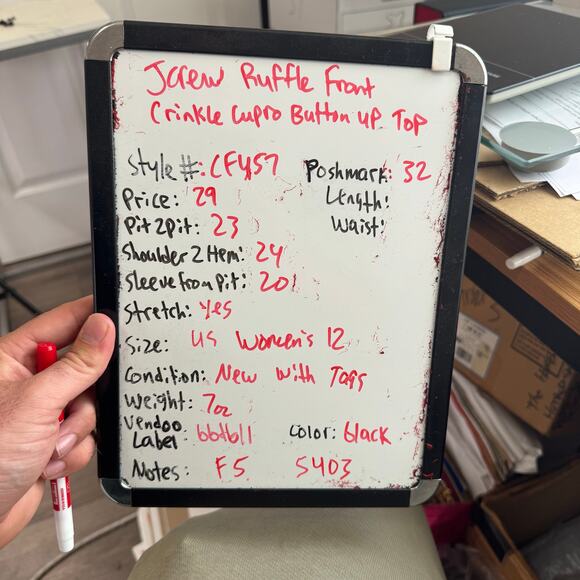 Jcrew Ruffle Front
Crinkle Cupro Button up Top
Style #: CFY57 Poshmark: 32
Price: 29 Length:
Pit2pit: 23 Waist:
Shoulder2Hem: 24
Sleeve from Pit: 20
Stretch: Yes
Size: US Women's 12
Condition: New With Tags
Weight: 7oz
Vendoo
Label: bbdb11 Color: black
Notes: F5 5403